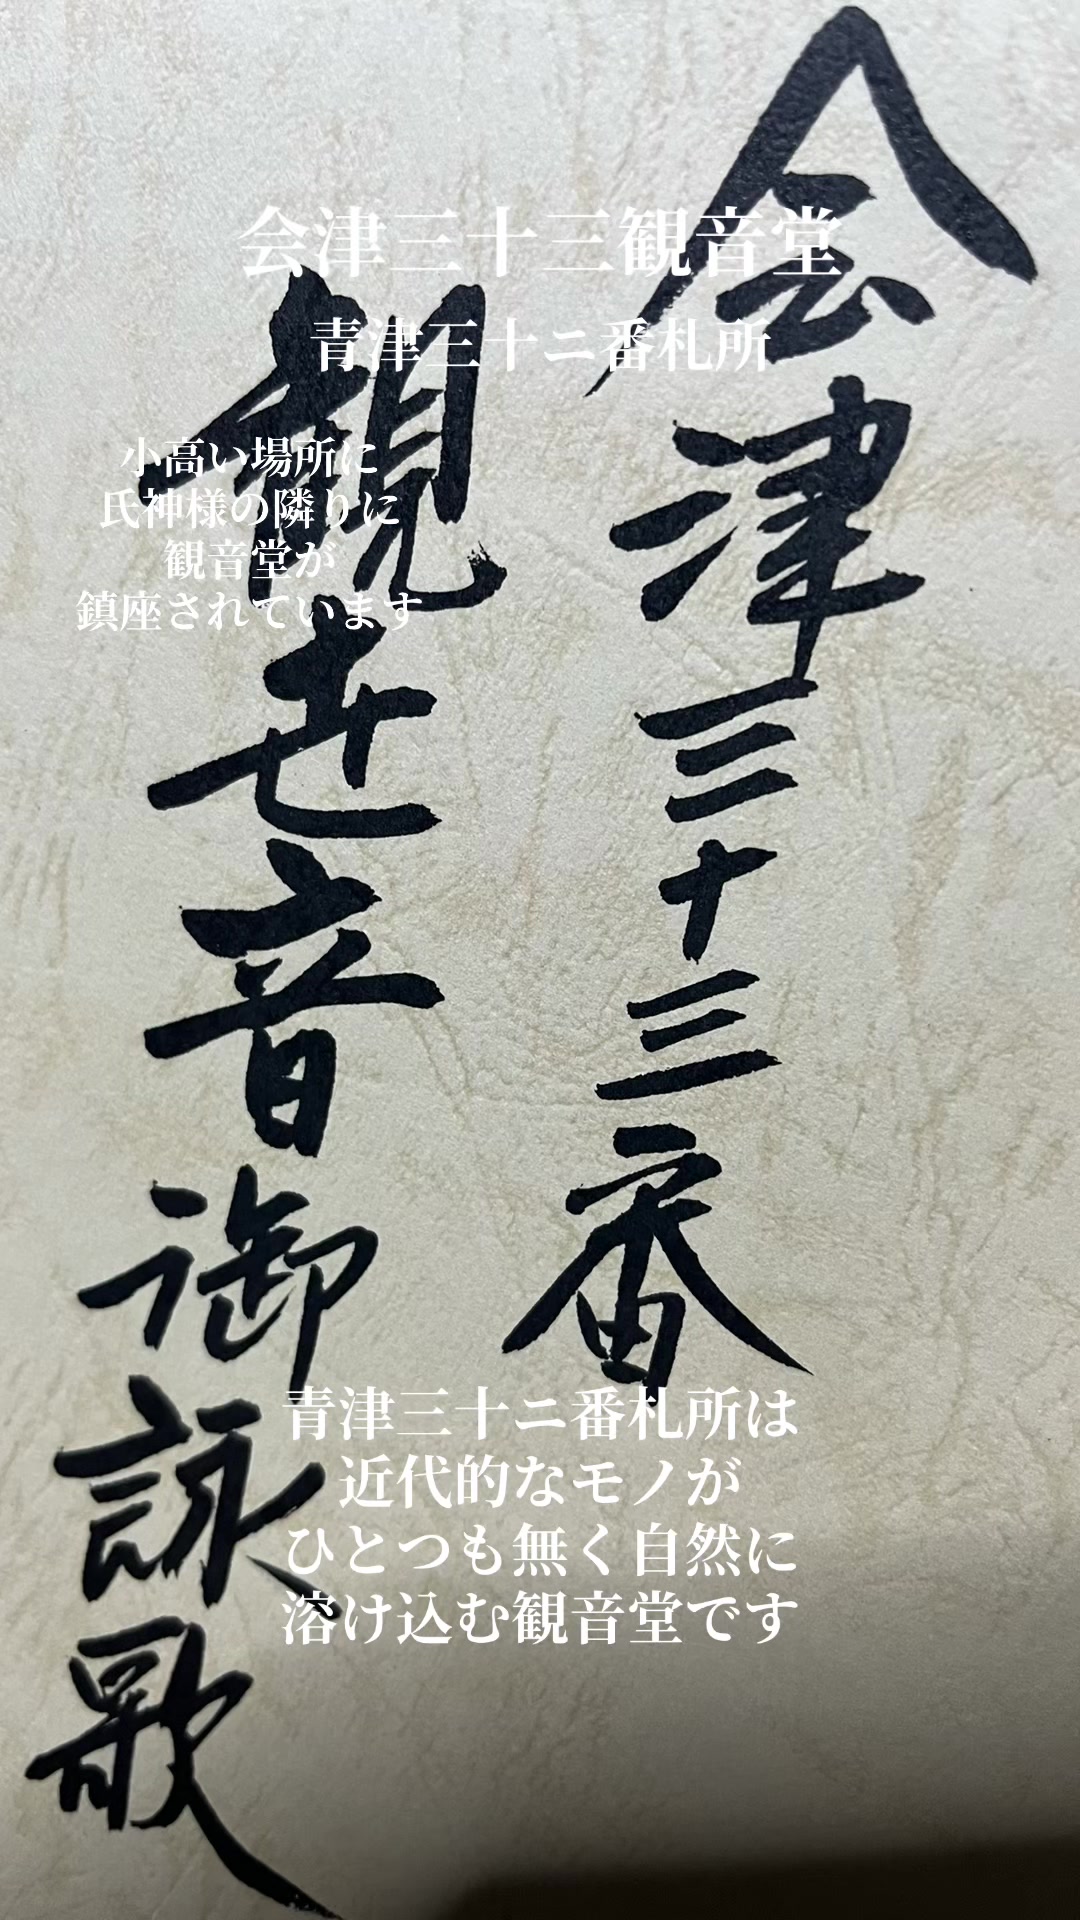 会津三十三観音堂
青津三十ニ番札所
小高い場所に
氏神様の隣りに
観音堂が
鎮座されています
会津三十三番
観世音御詠歌
青津三十ニ番札所は
近代的なモノが
ひとつも無く自然に
溶け込む観音堂です